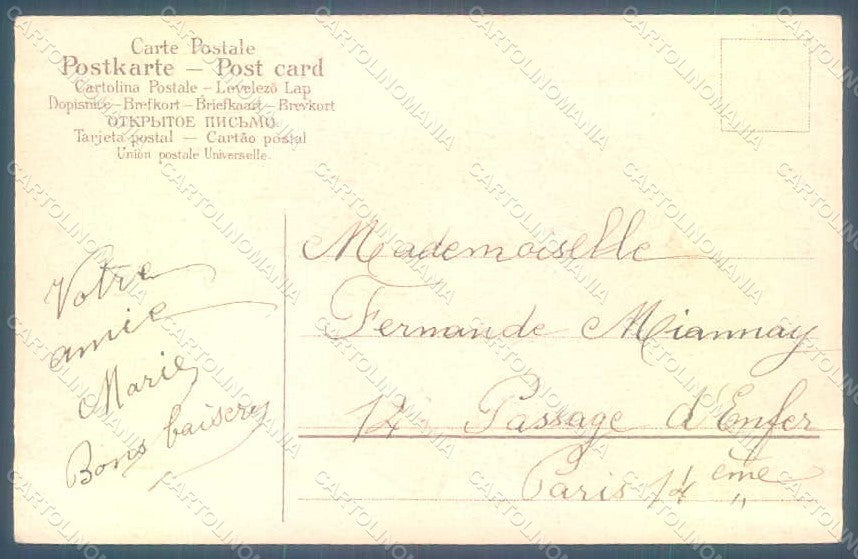 Carte Postale
Postkarte – Post card
Cartolina Postale – Levelező Lap
Dopisnice – Brefkort – Briefkaart – Brevkort
ОТКРЫТОЕ ПИСЬМО
Tarjeta postal — Cartão postal
Union postale Universelle.
Votre
amie
Marie
Bons baisers
Mademoiselle
Fernande Miannay
12 Passage d'Enfer
Paris 14 ème
CARTOLINOMANIA